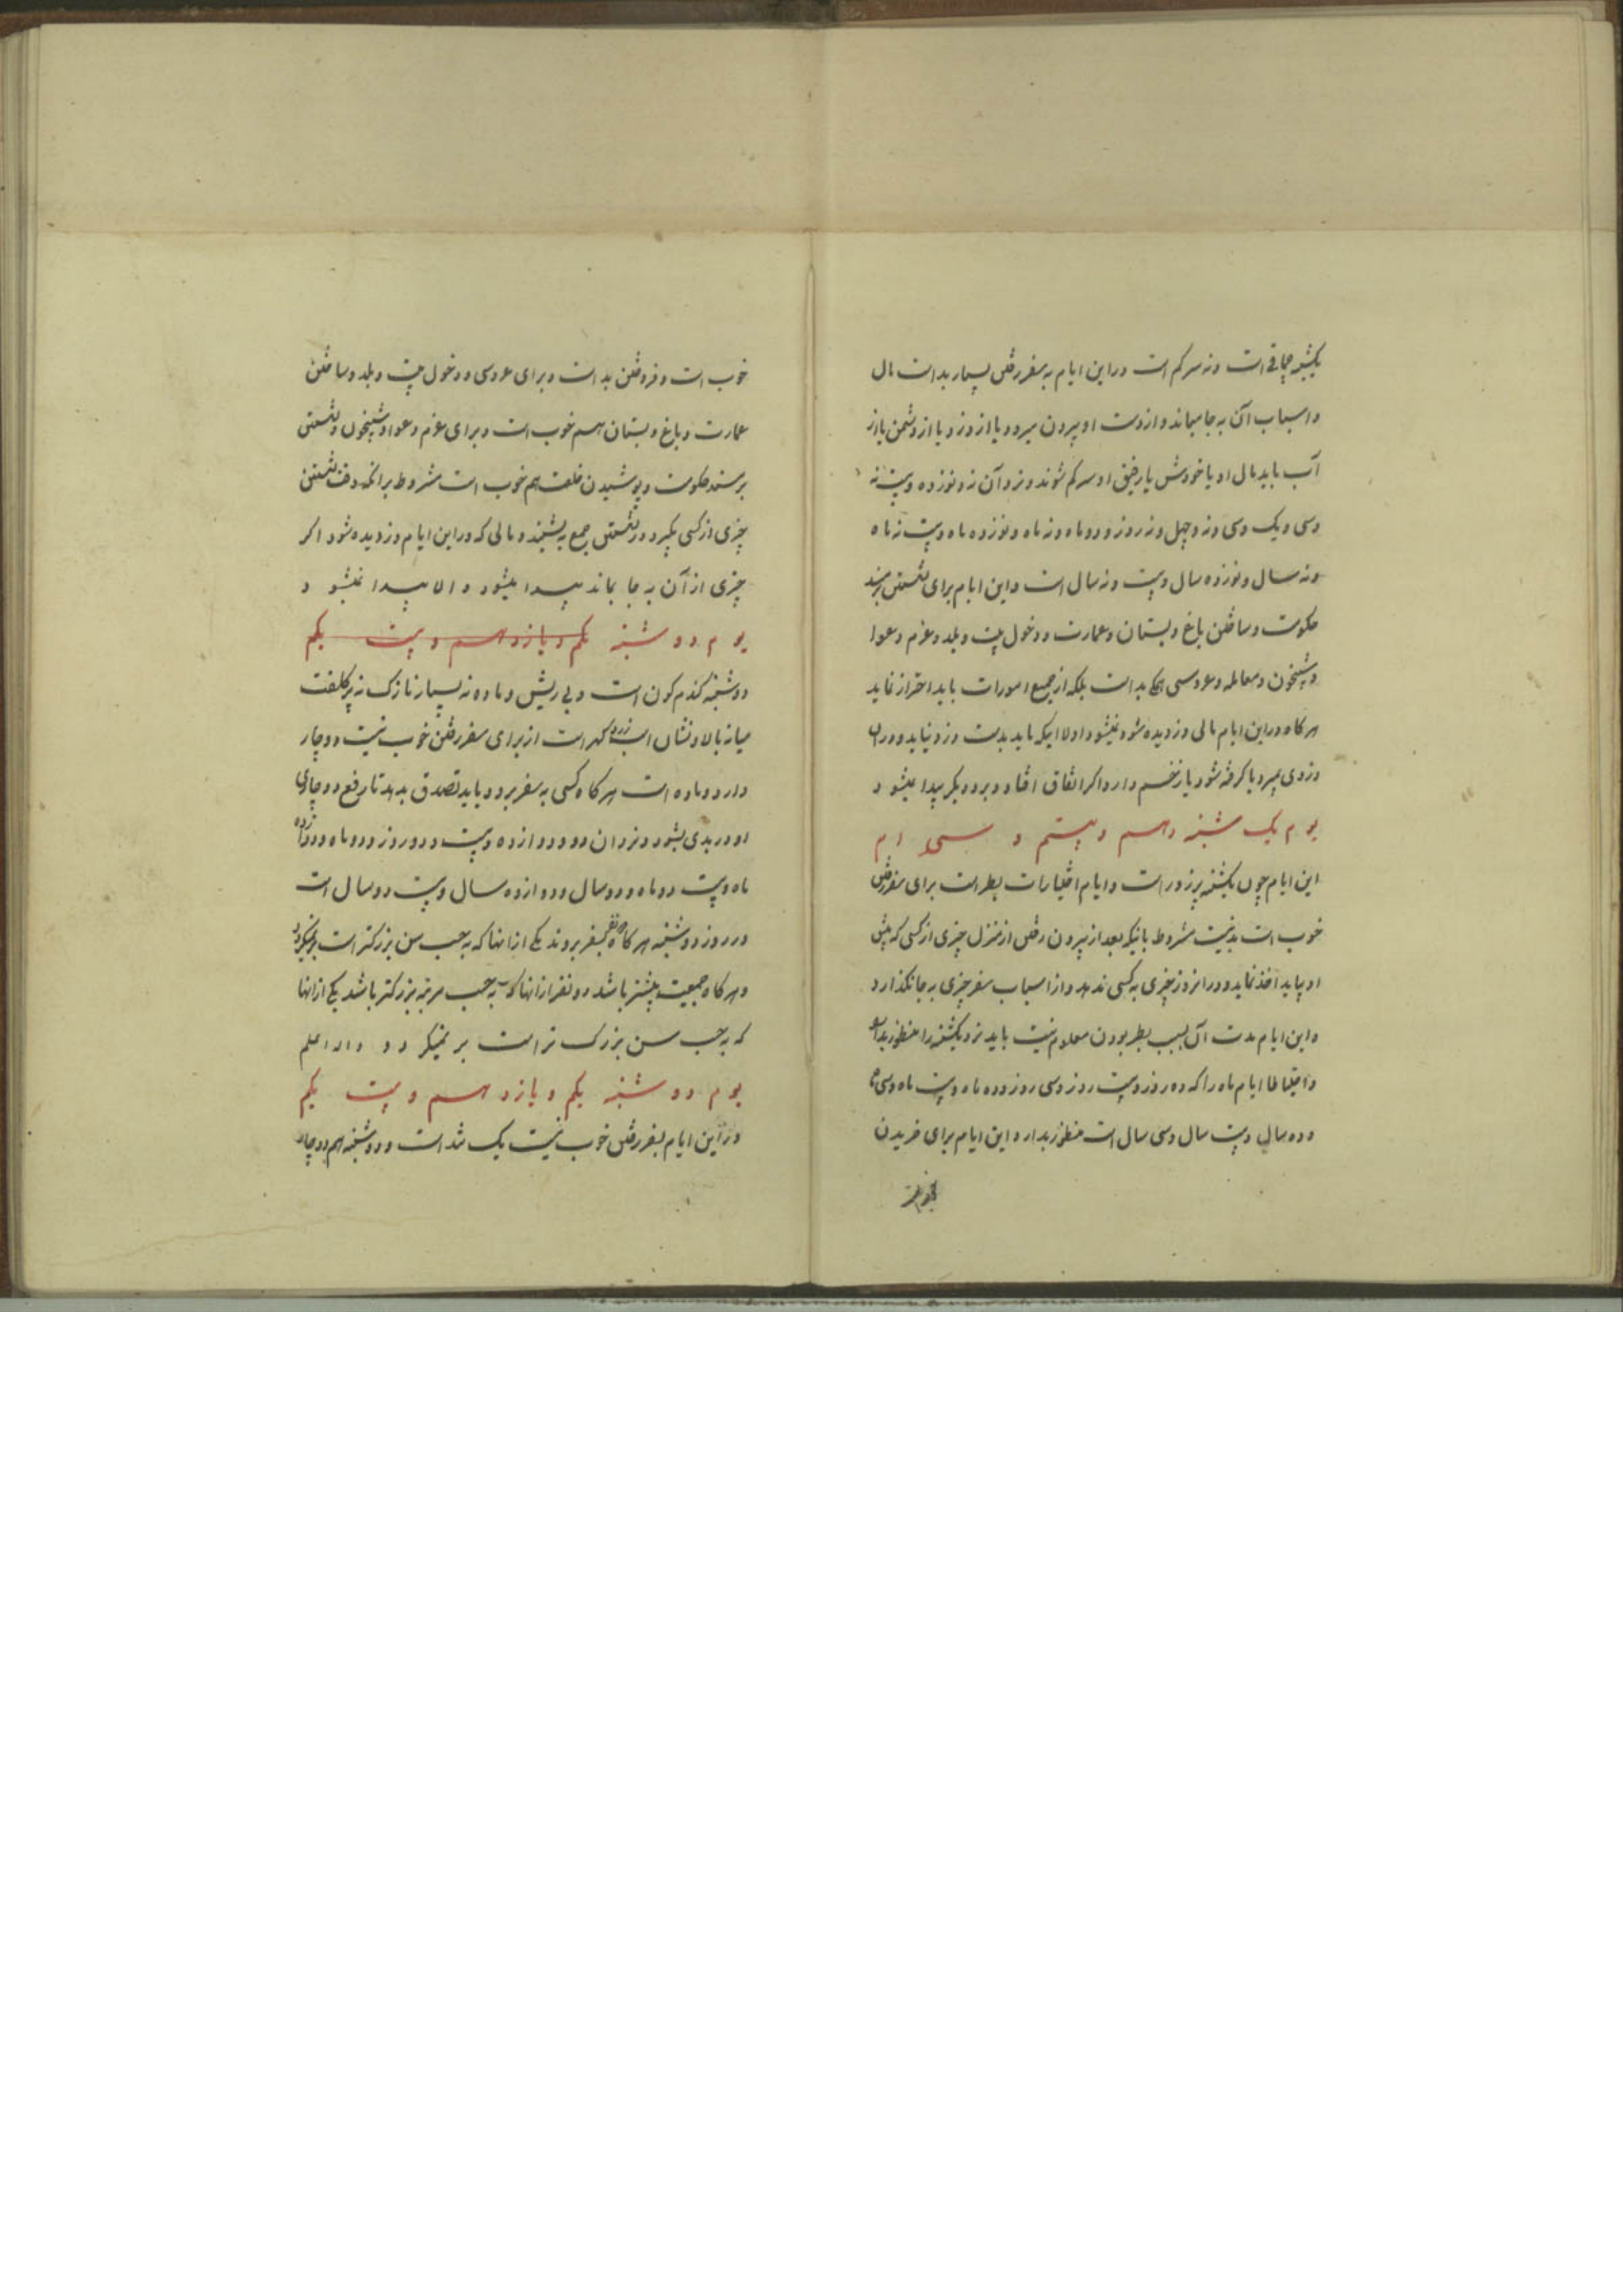 است و نه سرکم است در این ایام به سفر رفتن بسیار بد است مال
و اسباب آن به جا میماند و از دست او بیرون میرود یا از دزد و یا از دشمن یا از
آب باید مال او یا خودش یا رفیق او سرکم شوند و نزد آن نه و نوزده و بیست نه
و سی و یک و سی و نه و چهل و نه روز و دو ماه و نه ماه و نوزده ماه و بیست نه ماه
و نه سال و نوزده سال و بیست و نه سال است و این ایام برای نشستن
حکومت و ساختن باغ و بستان و عمارت و دخول بیت و بلد و عزم دعوا
و شبخون و معامله و عروسی بد است بلکه از جمیع امورات باید احتراز نماید
هر کاه در این ایام مالی دزدیده شود بدست دزد نیاید
دزدی بمیرد یا کرفته شود یا زخم دارد اکر اتفاق افتاد دیکر پیدا میشود
یوم یک شنبه دهم و بیستم و سی ام
این ایام چون یکشنبه پر زور است و ایام اختیارات برای سفر رفتن
خوب است بد نیست مشروط بانیکه بعد از بیرون رفتن از منزل چیزی از کسی که پیش
او بیاید اخذ نماید و در انروز چیزی به کسی ندهد و از اسباب سفر چیزی به جا نکذارد
و این ایام مدت آن بسبب بودن معلوم نیست باید نزد یکشنبه را منظور بدارد
و احتیاطا ایام ماه را که ده روز و بیست روز و سی روز و ده ماه و بیست ماه و سی ماه
و ده سال و بیست سال و سی سال است منظور بدارد و این ایام برای خریدن
خوب است و فروختن بد است و برای عروسی و دخول بیت و بلد و ساختن
عمارت و باغ و بستان هم خوب است و برای عزم دعوا و شبخون و نشستن
بر مسند حکومت و پوشیدن خلعت هم خوب است مشروط برانکه وقت نشستن
چیزی از کسی بکیرد و در نشستن جمع بنشیند و مالی که در این ایام دزدیده شود اکر
چیزی از آن به جا بماند پیدا میشود و الا پیدا نمیشود
یوم دو شنبه یکم و یازدهم و بیست یکم
دوشنبه کندم کون است و بی ریش و ماده نه بسیار نازک نه پر کلفت
میانه بالا و نشان اسب زرده کهر است از برای سفر رفتن خوب نیست و دچار
دارد و ماده است هر کاه کسی به سفر برود باید تصدق بدهد تا رفع دوچاری
او در بدی بشود و نزد ان دو و دوازده و بیست و دو روز و دو ماه و دوازده
ماه و بیست دو ماه و دو سال و دوازده سال و بیست دو سال است
در روز دوشنبه هر کاه دو نفر بسفر بروند یکی از انها که به حسب سن بزرکتر است بر نمیکردد
و هر کاه جمعیت بیشتر باشد دو نفر از انها که به حسب مرتبه بزرکتر باشد یکی از انها
که به حسب سن بزرک تر است بر نمیکردد و الله اعلم
یوم دو شنبه یکم و یازدهم و بیست یکم
در این ایام بسفر رفتن خوب نیست یک شد است و دوشنبه هم دوچار